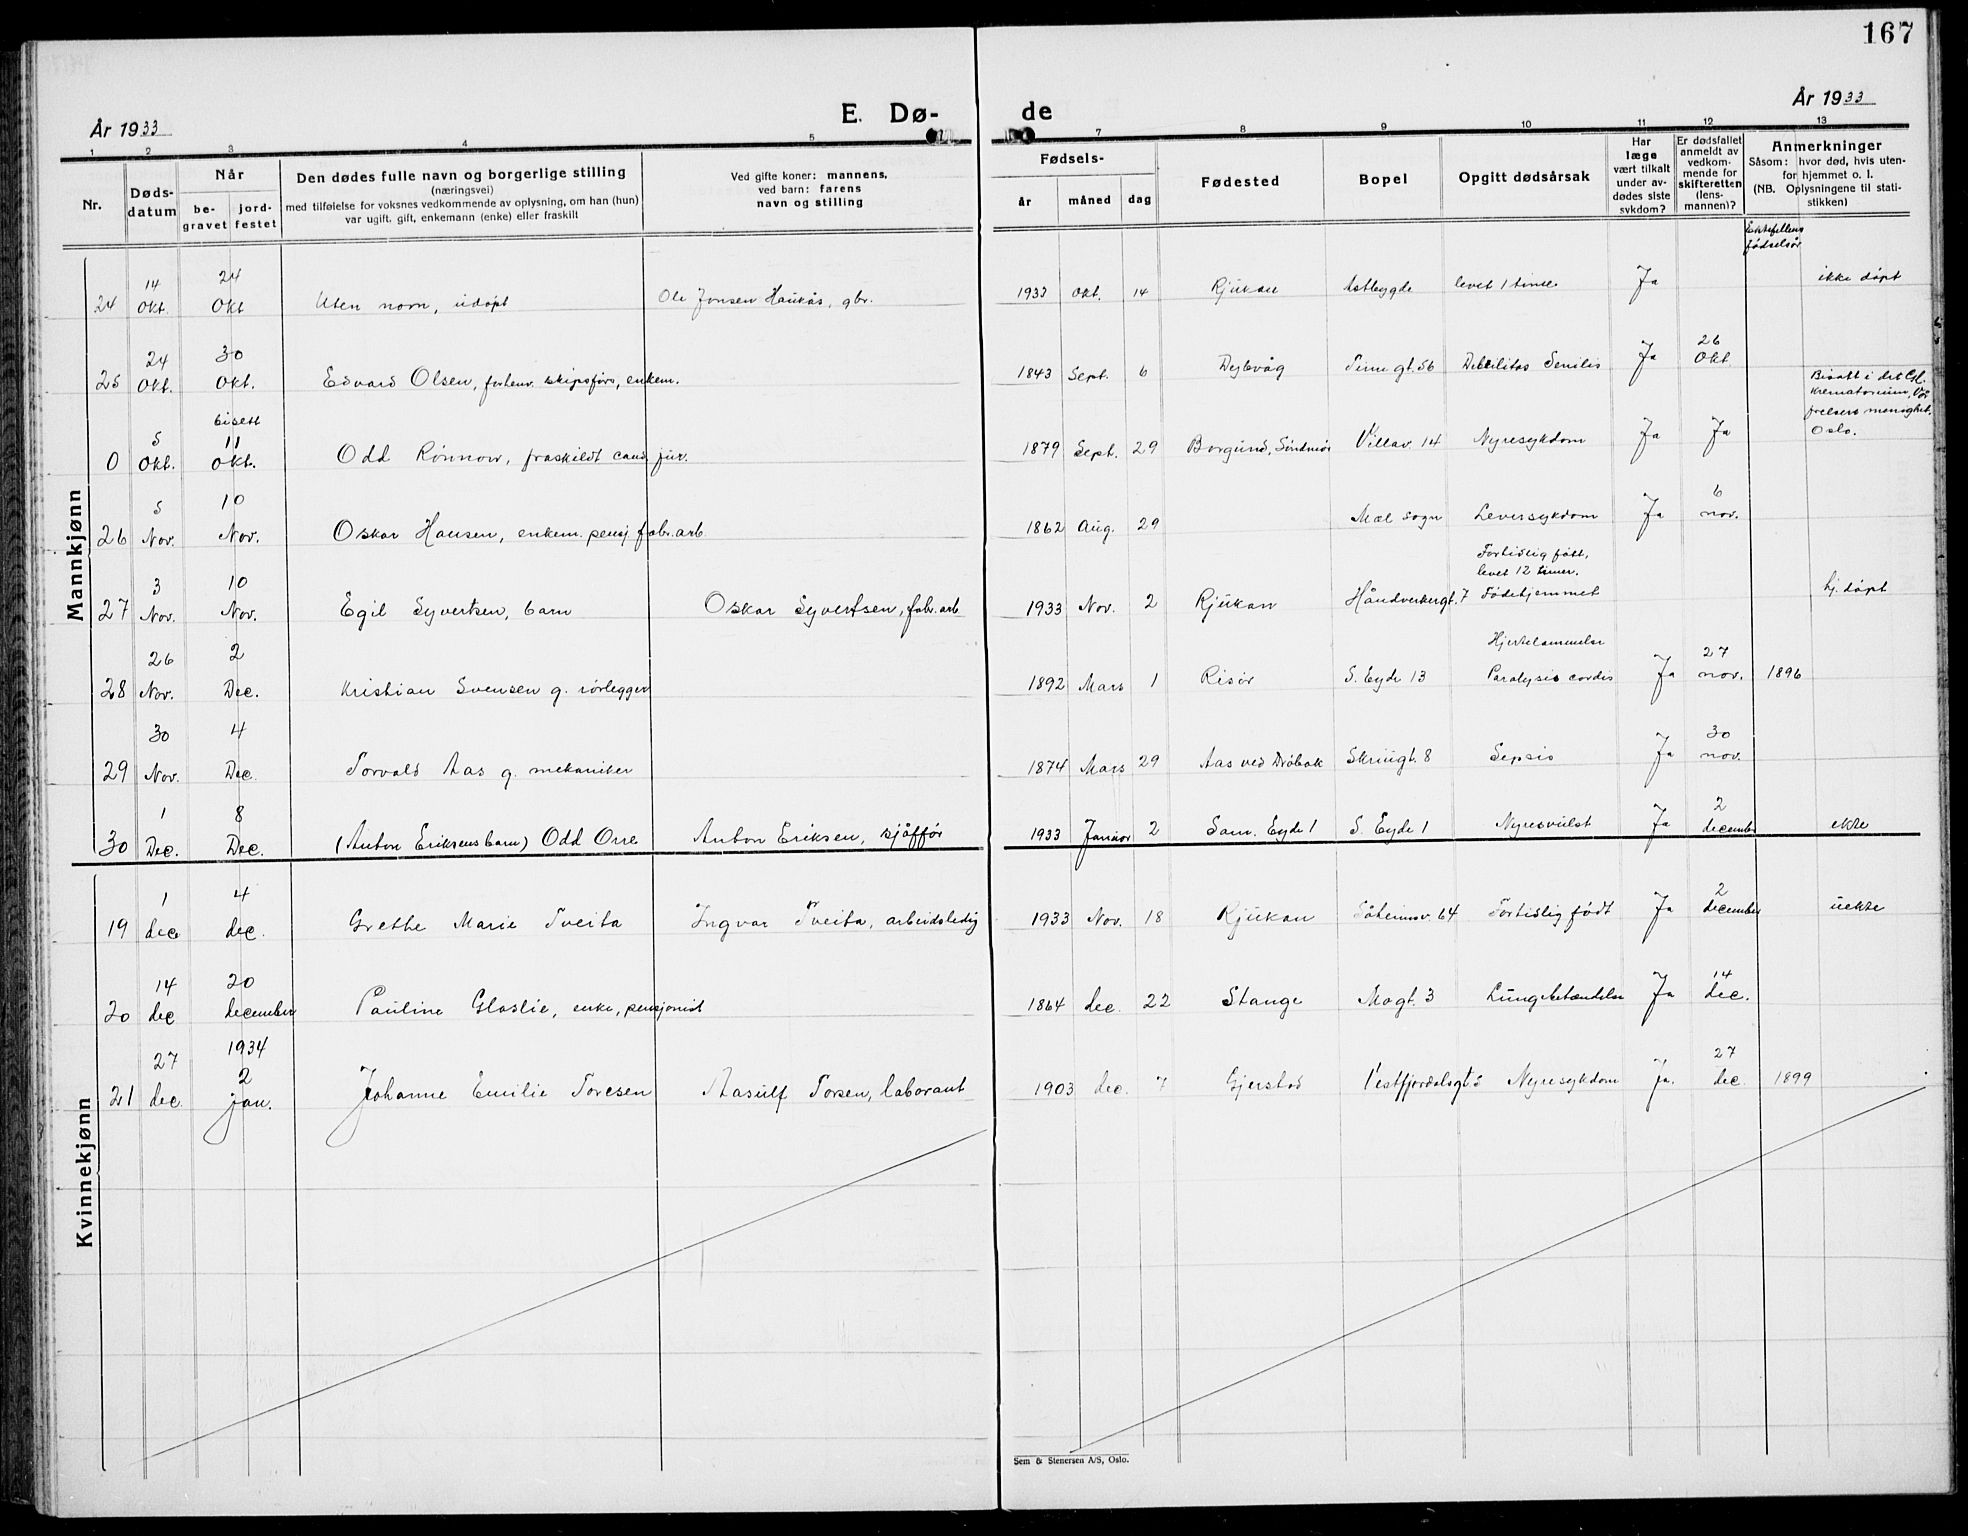 167
År 1933
E. Dø-
de
År 1933
1 2 3 4 5 7 8 9 10 11 12 13
Nr.
Døds-
datum
Når
be-
gravet
jord-
festet
Den dødes fulle navn og borgerlige stilling
(næringsvei)
med tilføielse for voksnes vedkommende av oplysning, om han (hun)
var ugift, gift, enkemann (enke) eller fraskilt
Ved gifte koner: mannens,
ved barn: farens
navn og stilling
Fødsels-
år
måned
dag
Fødested
Bopel
Opgitt dødsårsak
Har
læge
vært tilkalt
under av-
dødes siste
sykdom?
Er dødsfallet
anmeldt av
vedkom-
mende for
skifteretten
(lens-
mannen)?
Anmerkninger
Såsom: hvor død, hvis uten-
for hjemmet o. l.
(NB. Oplysningene til stati-
stikken)
Ektefellens
fødselsår
Mannkjønn
24 14 Okt. 24 Okt Uten navn, udøpt Ole Jonsen Haukås, gbr. 1933 Okt. 14 Rjukan Astbygde levet 1 time Ja ikke døpt
25 24 Okt. 30 Okt. Edvard Olsen, forhenv. skipsførs, enkem. 1843 Sept. 6 Dybvåg Tinngt. 56 Debilitas Senilis Ja 26 Okt.
0 5 Okt. bisett 11 Okt. Odd Rönnow, fraskildt cand. jur. 1879 Sept. 29 Borgund, Sündmör Villav. 14 Nyresykdom Ja Ja
Bisatt i det
krematorium, Vår
frelsers menighet,
Oslo.
26 5 Nov. 10 Nov. Oskar Hansen, enkem. pensj. fabr. arb. 1862 Aug. 29 Mæl sogn Leversykdom Ja 6 nov.
27 3 Nov. 10 Nov. Egil Syvertsen, barn Oskar Syvertsen, fabr. arb 1933 Nov. 2 Rjukan Håndverkergt. 7 Fortidlig født,
levet 12 timer.
Fødehjemmet hj. døpt
28 26 Nov. 2 Dec. Kristian Svensen g. rörlegger 1892 Mars 1 Risör S. Eyde 13 Hjertelammelse
Paralysis cordis Ja 27 nov. 1896
29 30 Nov. 4 Dec. Torvald Aas g. mekaniker 1874 Mars 29 Aas ved Dröbak Skriugt. 8 Sepsis Ja 30 nov.
30 1 Dec. 8 Dec. (Anton Eriksens barn) Odd Orre Anton Eriksen, sjåffør 1933 Januar 2 Sam. Eyde 1 S. Eyde 1 Nyresvulst Ja 2 december ekte
Kvinnekjønn
19 1 dec 4 dec. Grethe Marie Tveita Ingvar Tveita, arbeidsledig 1933 Nov. 18 Rjukan Såheimsv. 64 Fortidlig født Ja 2 december uekte
20 14 dec 20 december Pauline Glaslie, enke, pensjonist 1864 dec. 22 Stange Mogt. 3 Lungebetændelse Ja 14 dec.
21 27 dec. 1934 2 jan. Johanne Emilie Toresen Aasulf Torsen, laborant 1903 dec. 7 Gjerstad Vestfjordalsgt. 5 Nyresykdom Ja. 27 dec. 1899
Sem & Stenersen A/S, Oslo.